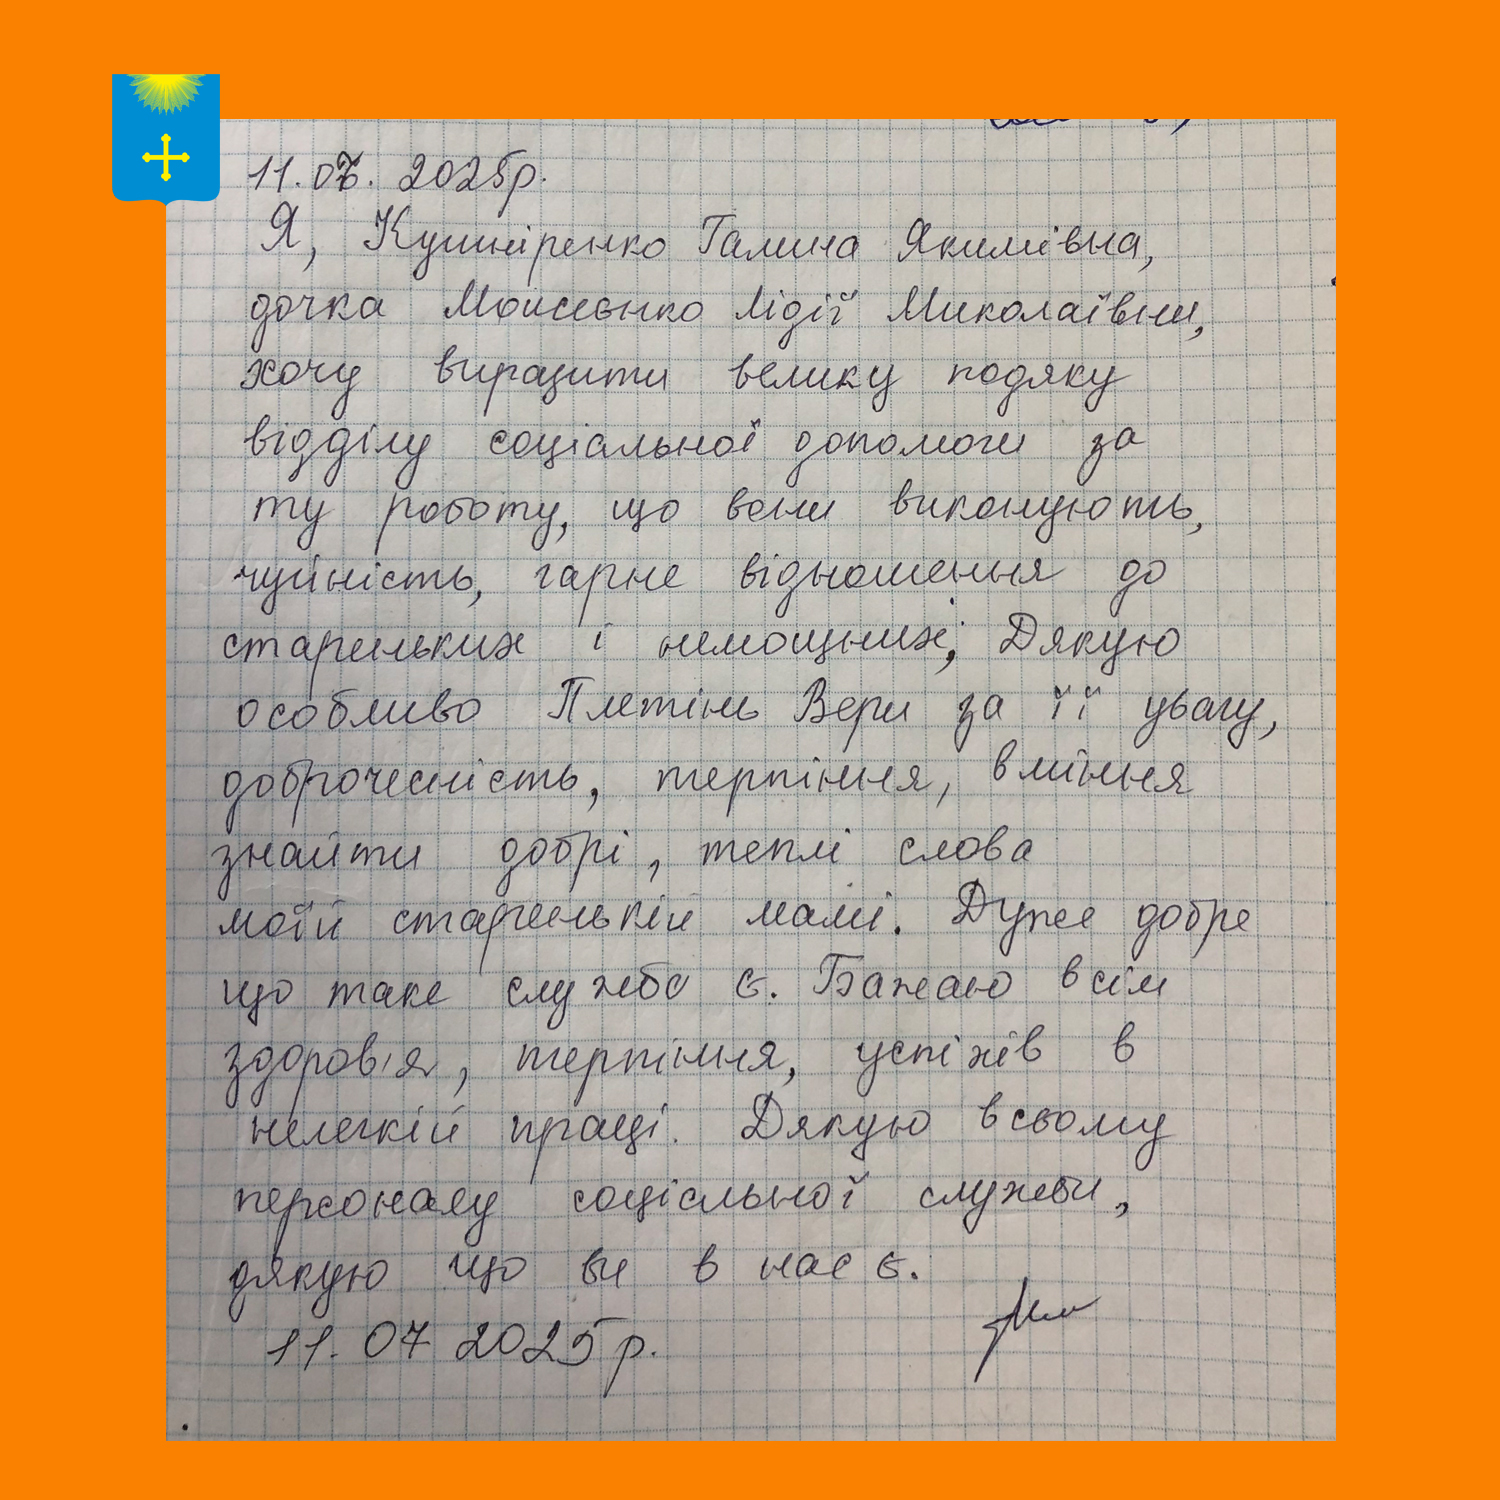 11.07.2025р.
Я, Кушніренко Галина Якимівна,
дочка Моисеєнко Лідії Миколаївни,
хочу виразити велику подяку
відділу соціальної допомоги за
ту роботу, що вони виконують,
чуйність, гарне відношення до
стареньких і немощних; Дякую
особливо Плетінь Вери за її увагу,
доброчесність, терпіння, вміння
знайти добрі, теплі слова
моїй старенькій мамі. Дуже добре
що таке служба є. Бажаю всім
здоров'я, терпіння, успіхів в
нелегкій праці. Дякую всьому
персоналу соціальної служби,
дякую що ви в нас є.
11.07 2025р.